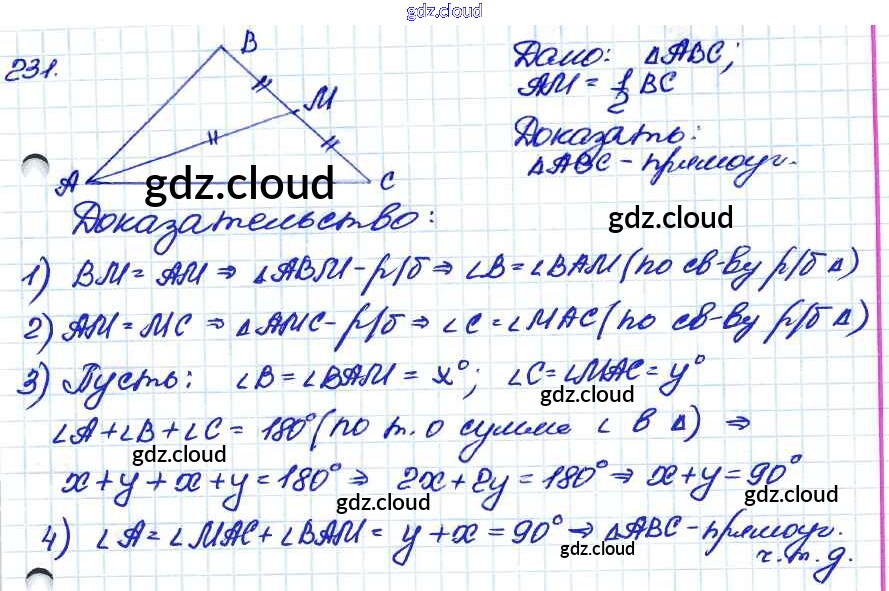 gdz.cloud
231.
B
M
A
C
Дано: △ABC;
AM = 1/2 BC
Доказать:
△ABC - прямоуг.
gdz.cloud
gdz.cloud
Доказательство:
1) BM = AM ⇒ △ABM - р/б ⇒ ∠B = ∠BAM (по св-ву р/б △)
2) AM = MC ⇒ △AMC - р/б ⇒ ∠C = ∠MAC (по св-ву р/б △)
3) Пусть: ∠B = ∠BAM = x°; ∠C = ∠MAC = y°
gdz.cloud
∠A + ∠B + ∠C = 180° (по т. о сумме ∠ в △) ⇒
gdz.cloud
x + y + x + y = 180° ⇒ 2x + 2y = 180° ⇒ x + y = 90°
gdz.cloud
gdz.cloud
4) ∠A = ∠MAC + ∠BAM = y + x = 90° ⇒ △ABC - прямоуг.
gdz.cloud
ч.т.д.